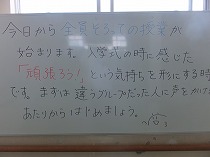 今日から全員そろっての授業が
始まります。入学式の時に感じた
「頑張ろう!」という気持ちを形にする時
です。まずは違うグループだった人に声をかけた
あたりからはじめましょう。